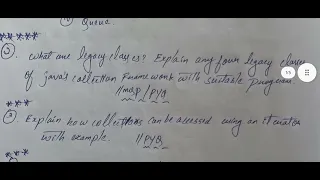 Queue.
****
②. What are legacy classes? Explain any four legacy classes
of java's collection framework with suitable program
//mdp/PYQ
1/5
***
③. Explain how collections can be accessed using an iterator
with example. //PYQ